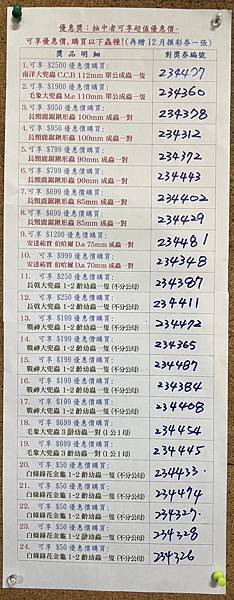 優惠獎：抽中者可享超值優惠價~
可享優惠價,購買以下蟲種!(再贈12月摸彩券一張)
獎品明細 對獎券編號
1.可享 $2500 優惠價購買:
南洋大兜蟲 C.C.B 112mm 單公成蟲一隻 234427
2.可享 $1900 優惠價購買:
毛象大兜蟲 M.e 110mm 單公成蟲一隻 234360
3.可享 $950 優惠價購買:
長頸鹿鋸鍬形蟲 100mm 成蟲一對 234378
4.可享 $950 優惠價購買:
長頸鹿鋸鍬形蟲 100mm 成蟲一對 234312
5.可享 $799 優惠價購買:
長頸鹿鋸鍬形蟲 90mm 成蟲一對 234372
6.可享 $799 優惠價購買:
長頸鹿鋸鍬形蟲 90mm 成蟲一對 234443
7.可享 $699 優惠價購買:
長頸鹿鋸鍬形蟲 85mm 成蟲一對 234402
8.可享 $699 優惠價購買:
長頸鹿鋸鍬形蟲 85mm 成蟲一對 234429
9.可享 $1200 優惠價購買:
安達祐實 伯哈爾 D.a 75mm 成蟲一對 234481
10. 可享 $999 優惠價購買:
安達祐實 伯哈爾 D.a 70mm 成蟲一對 234348
11. 可享 $250 優惠價購買:
長戟大兜蟲 1-2 齡幼蟲一隻(不分公母) 234387
12. 可享 $250 優惠價購買:
長戟大兜蟲 1-2 齡幼蟲一隻(不分公母) 234411
13. 可享 $199 優惠價購買:
戰神大兜蟲 1-2 齡幼蟲一隻(不分公母) 234472
14. 可享 $199 優惠價購買:
戰神大兜蟲 1-2 齡幼蟲一隻(不分公母) 234365
15. 可享 $199 優惠價購買:
戰神大兜蟲 1-2 齡幼蟲一隻(不分公母) 234487
16. 可享 $199 優惠價購買:
戰神大兜蟲 1-2 齡幼蟲一隻(不分公母) 234384
17. 可享 $199 優惠價購買:
戰神大兜蟲 1-2 齡幼蟲一隻(不分公母) 234408
18. 可享 $699 優惠價購買:
毛象大兜蟲 3 齡幼蟲一對(1公1母) 234454
19. 可享 $699 優惠價購買:
毛象大兜蟲 3 齡幼蟲一對(1公1母) 234445
20. 可享 $50 優惠價購買:
白條綠花金龜 1-2 齡幼蟲一隻(不分公母) 234433
21. 可享 $50 優惠價購買:
白條綠花金龜 1-2 齡幼蟲一隻(不分公母) 234474
22. 可享 $50 優惠價購買:
白條綠花金龜 1-2 齡幼蟲一隻(不分公母) 234327
23. 可享 $50 優惠價購買:
白條綠花金龜 1-2 齡幼蟲一隻(不分公母) 234328
24. 可享 $50 優惠價購買:
白條綠花金龜 1-2 齡幼蟲一隻(不分公母) 234326